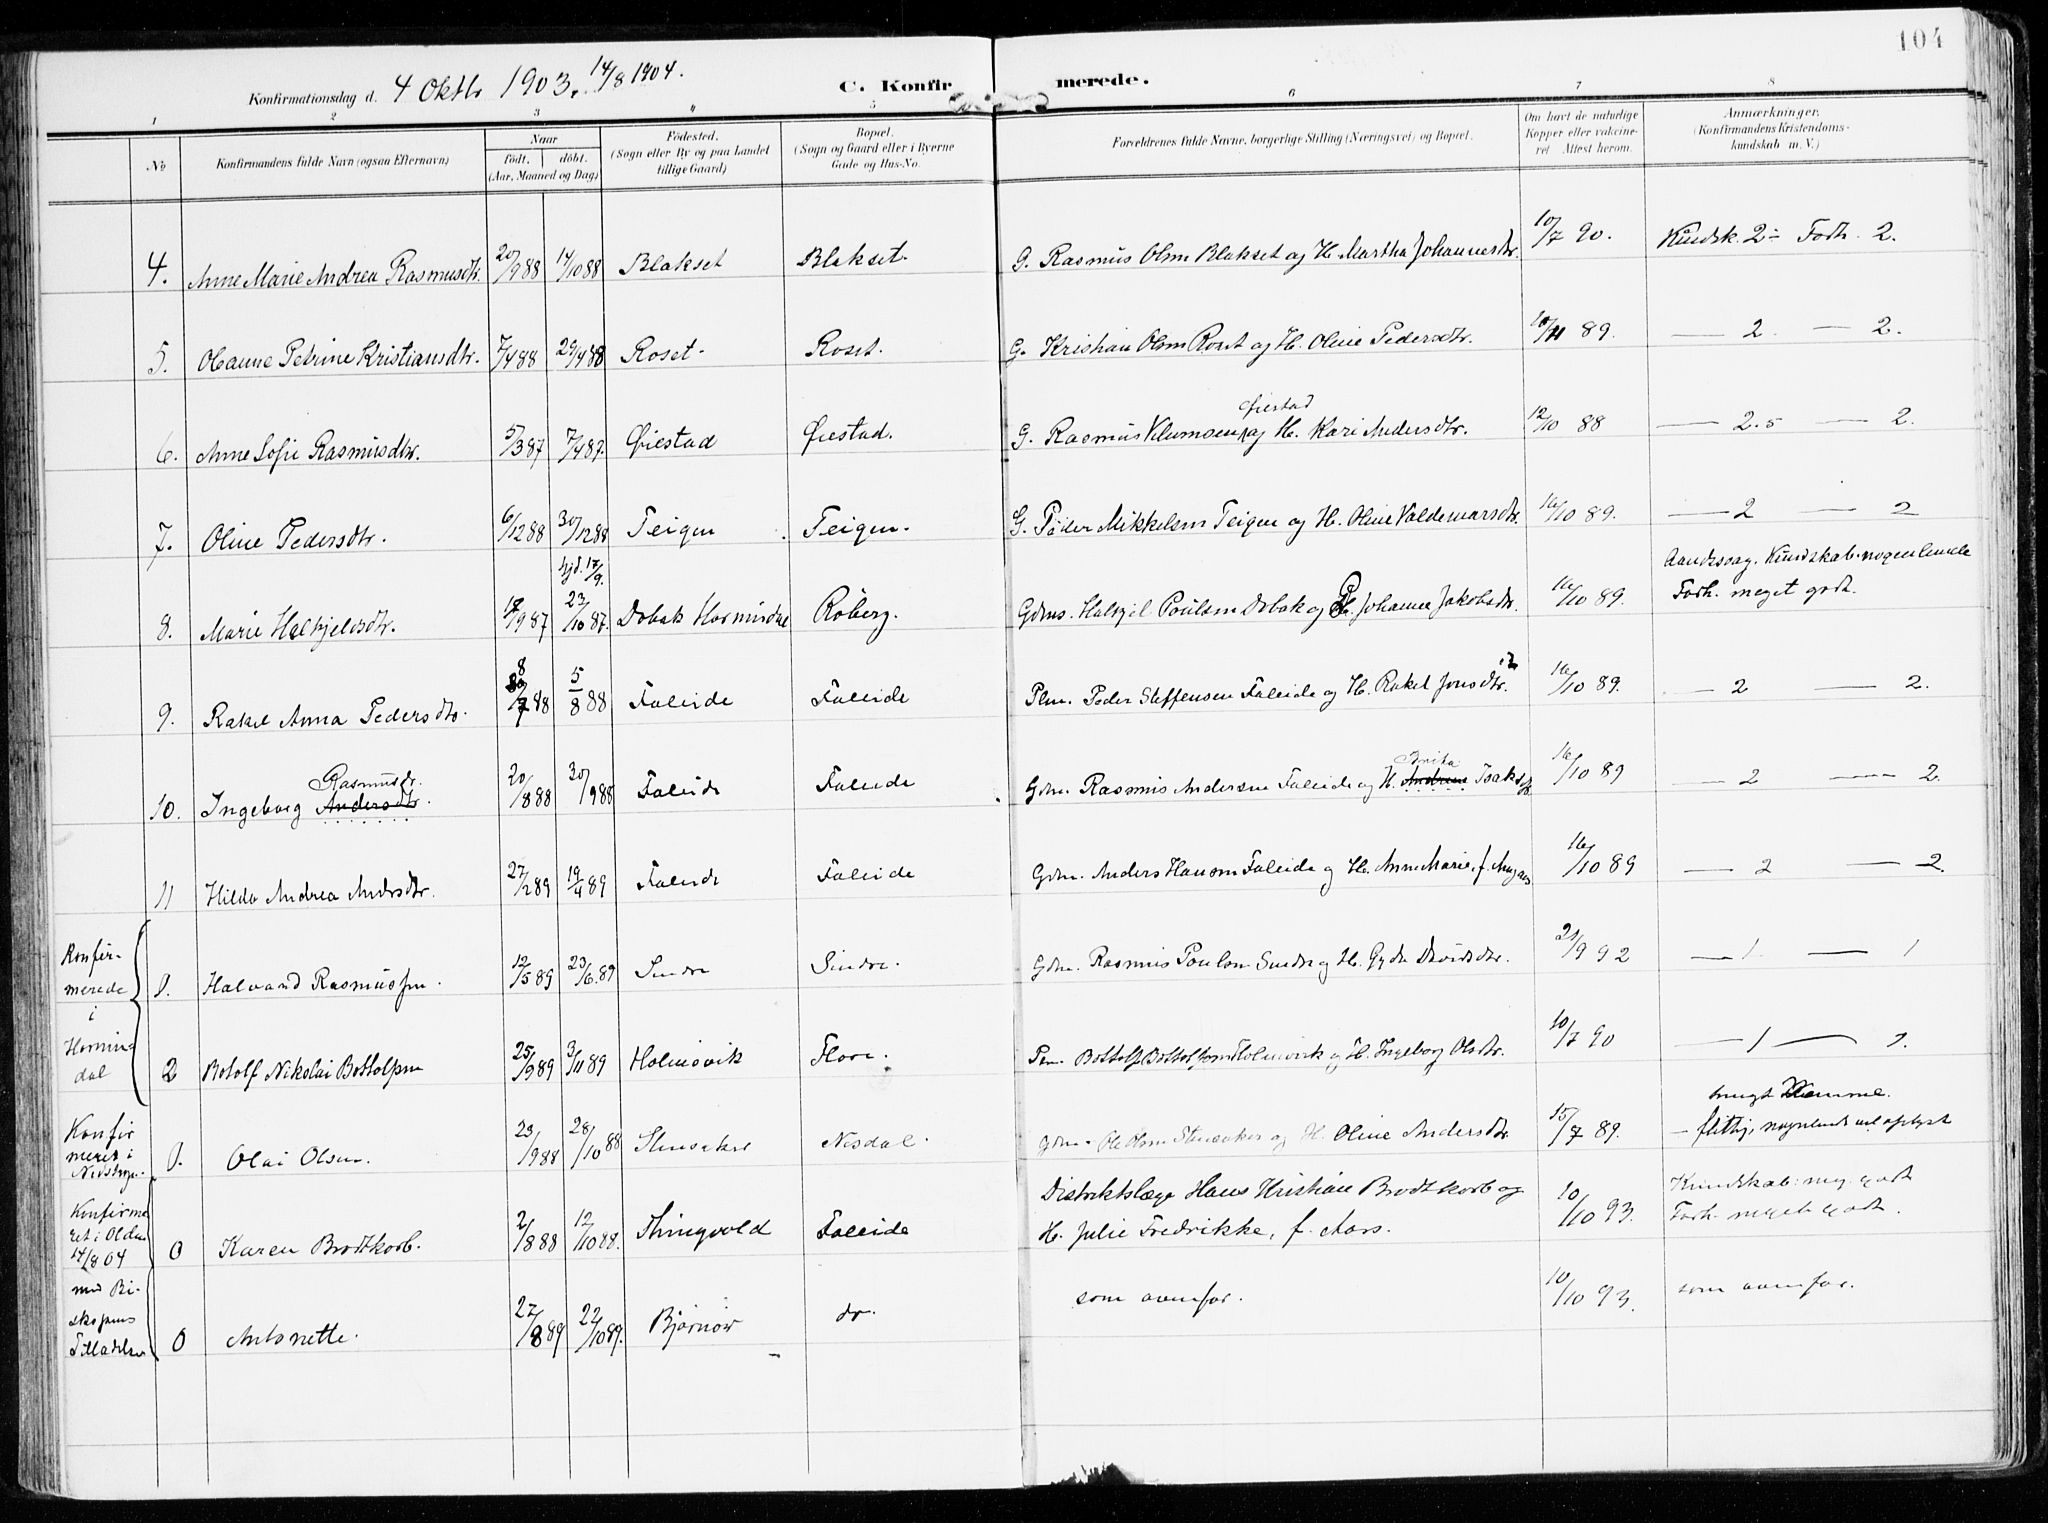 104
Konfirmationsdag d. 4 Oktbr 1903. 14/8 1904.
C. Konfirmerede.
1 2 3 4 5 6 7 8
No. Konfirmandens fulde Navn (ogsaa Efternavn) Naar født. døbt. (Aar, Maaned og Dag) Fødested. (Sogn eller By og paa Landet tillige Gaard) Bopæl. (Sogn og Gaard eller i Byerne Gade og Hus-No. Forældrenes fulde Navne, borgerlige Stilling (Næringsvei) og Bopæl. Om havt de naturlige Kopper eller vaccineret Attest herom. Anmærkninger. (Konfirmandens Kristendomskundskab m. V.)
4. Anne Marie Andrea Rasmusdtr. 20/9 88 14/10 88 Blakset Blakset. G. Rasmus Olsen Blakset og H. Martha Johannesdtr. 10/7 90. Kundsk. 2- Forh. 2.
5. Oleanne Petrine Kristiansdtr. 7/4 88 29/4 88 Roset. Roset. G. Kristian Olsen Roset og H. Oline Pedersdtr. 10/11 89. — 2. — 2.
Øiestad
6. Anne Sofie Rasmusdtr. 5/3 87 7/4 87. Øiestad Øiestad. G. Rasmus Klumsen og H. Kari Andersdtr. 12/10 88 — 2.5 — 2.
7. Oline Pedersdtr. 6/12 88 30/12 88 Teigen Teigen. G. Peder Mikkelsen Teigen og H. Oline Valdemarsdtr. 16/10 89. — 2 — 2
hjd. 17/9.
8. Marie Halkjeldsdtr. 17/9 87 23/10 87. Dobak Hornindal Roberg. Gdms. Halkjel Poulsen Dobak og H. Johanne Jakobsdtr. 16/10 89. Aandssvag. Kundskab. nogenlunde
Forh. meget godt.
9. Rakel Anna Pedersdtr. 8/7 88 5/8 88 Faleide Faleide Plm. Peder Steffensen Faleide og H. Rakel Jonsdtr. 16/10 89. — 2 — 2.
Rasmusdtr. Brita
10. Ingeborg Andersdtr. 20/8 88 30/9 88 Faleide Faleide Gdm. Rasmus Andersen Faleide og H. Andrea Isaksdtr. 16/10 89 — 2 — 2.
11 Hilda Andrea Andrsdtr. 27/2 89 19/4 89 Faleide Faleide Gdm. Anders Hansen Faleide og H. Anne Marie, f. 16/10 89 — 2 — 2.
Konfirmerede i Hornindal
1. Halvard Rasmussen. 12/5 89 23/6 89 Sindre Sindre. Gdm. Rasmus Poulsen Sindre og H. Gyda Davidsdtr. 21/9 92 — 1 — 1
2 Botolf Nikolai Bottolfsen 25/9 89 3/11 89 Holmøvik Flore. Pm. Bottolf Bottolfsen Holmøvik og H. Ingeborg Olsdtr. 10/7 90 — 1 — 1.
Konfirmeret i Nordstryn
1. Olai Olsen. 23/9 88 28/10 88 Stensaker Nesdal. Gdm. Ole Olsen Stensaker og H. Oline Andersdtr. 15/7 89. meget Hemme.
— flittig, nogenlunde vel oplyst
Konfirmeret i Olden 14/8 04 med Biskopens Tilladelse
0 Karen Brodtkorb. 2/8 88 12/10 88. Thingvold Faleide Distriktslæge Hans Kristian Brodtkorb og
H. Julie Fredrikke, f. Aars. 10/10 93. Kundskab: meg. godt
Forh. meget godt.
0 Antonette. 27/8 89 22/10 89. Bjørnør do. som ovenfor. 10/10 93. som ovenfor.